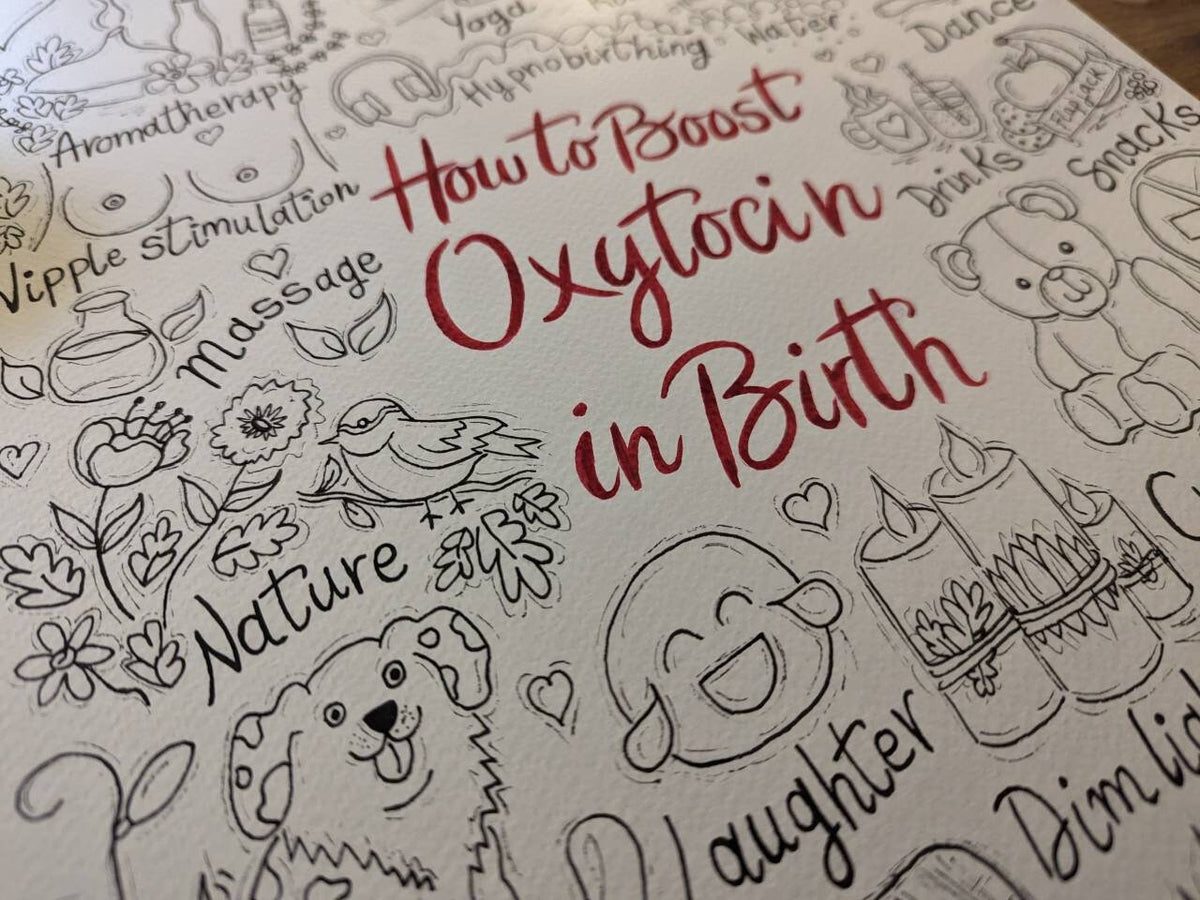 Yoga
Dance
Hypnobirthing
Water
Aromatherapy
How to Boost
Oxytocin
in Birth
Flap Jack
Drinks
Snacks
Nipple stimulation
Massage
Nature
Laughter